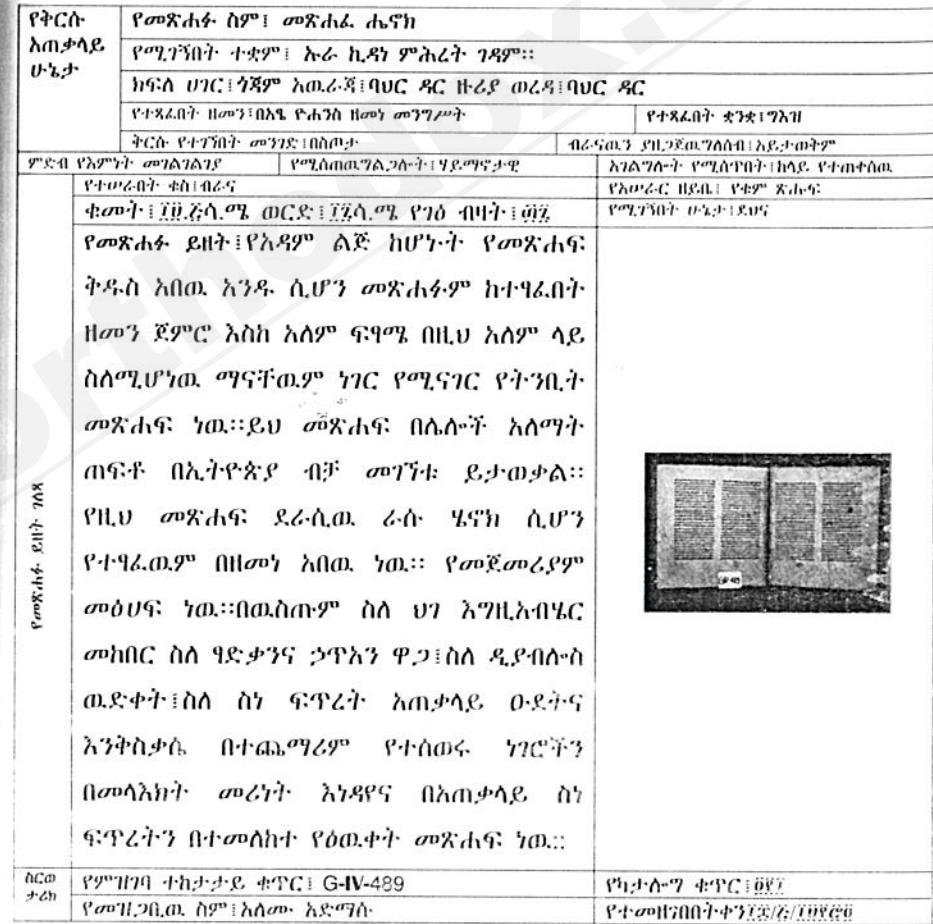 የቅርሱ አጠቃላይ ሁኔታ
የመጽሐፉ ስም፤ መጽሐፈ ሔኖክ
የሚገኝበት ተቋም፤ ኡራ ኪዳነ ምሕረት ገዳም።
ክፍለ ሀገር፤ጎጃም አዉራጃ፤ባህር ዳር ዙሪያ ወረዳ፤ባህር ዳር
የተጻፈበት ዘመን፤በአፄ ዮሐንስ ዘመነ መንግሥት
የተጻፈበት ቋንቋ፤ግእዝ
ቅርሱ የተገኘበት መንገድ፤በስጦታ
ብራናዉን ያዘጋጀዉ ግለሰብ፤አይታወቅም
ምድብ የእምነት መገልገልገያ
የሚሰጠዉ ግልጋሎት፤ሃይማኖታዊ
አገልግሎት የሚሰጥበት፤ከላይ የተጠቀሰዉ
የተሠራበት ቁስ፤ብራና
የአሠራር ዘይቤ፤ የቁም ጽሑፍ
ቁመት፤ ሳ.ሜ ወርድ፤ ሳ.ሜ የገፅ ብዛት፤
የሚገኝበት ሁኔታ፤ደህና
የመጽሐፉ ይዘት ገለጻ
የመጽሐፉ ይዘት፤የአዳም ልጅ ከሆኑት የመጽሐፍ
ቅዱስ አበዉ አንዱ ሲሆን መጽሐፉም ከተፃፈበት
ዘመን ጀምሮ እስከ አለም ፍፃሜ በዚህ አለም ላይ
ስለሚሆነዉ ማናቸዉም ነገር የሚናገር የትንቢት
መጽሐፍ ነዉ።ይህ መጽሐፍ በሌሎች አለማት
ጠፍቶ በኢትዮጵያ ብቻ መገኘቱ ይታወቃል።
የዚህ መጽሐፍ ደራሲዉ ራሱ ሄኖክ ሲሆን
የተፃፈዉም በዘመነ አበዉ ነዉ። የመጀመሪያም
መፅሀፍ ነዉ።በዉስጡም ስለ ህገ እግዚአብሄር
መከበር ስለ ፃድቃንና ኃጥአን ዋጋ፤ስለ ዲያብሎስ
ዉድቀት፤ስለ ስነ ፍጥረት አጠቃላይ ዑደትና
እንቅስቃሴ በተጨማሪም የተሰወሩ ነገሮችን
በመላእክት መሪነት እነዳየና በአጠቃላይ ስነ
ፍጥረትን በተመለከተ የዕዉቀት መጽሐፍ ነዉ።
ስርወ ታሪክ
የምዝገባ ተከታታይ ቁጥር፤ G-IV-489
የካታሎግ ቁጥር፤
የመዝጋቢዉ ስም፤አለሙ አድማሱ
የተመዘገበበት ቀን